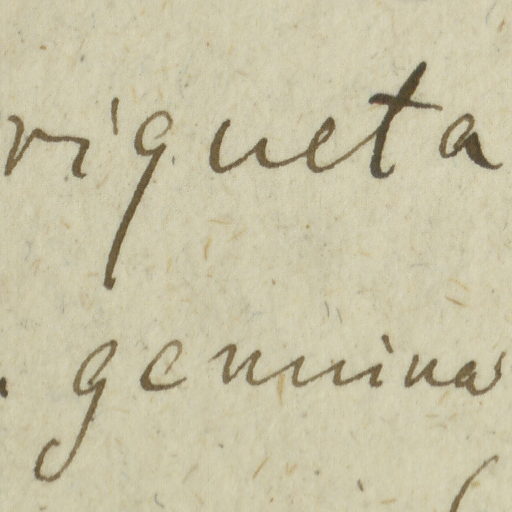 riqueta
. genuina